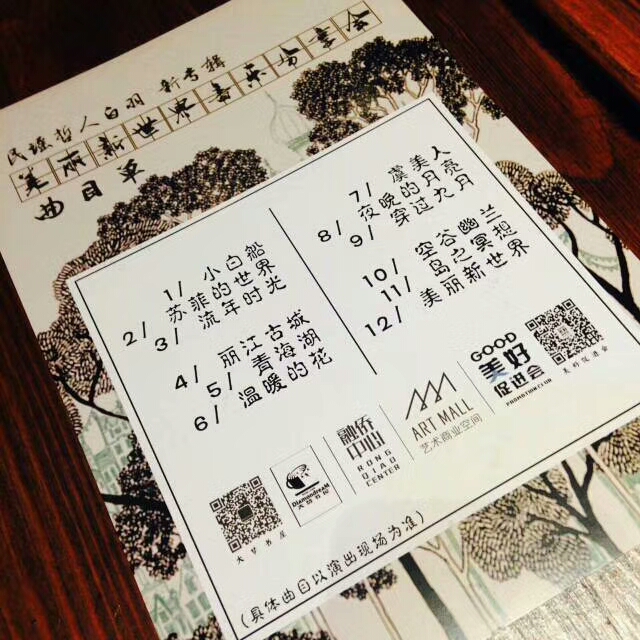 民谣诗人白羽 新专辑
美丽新世界音乐分享会
曲目单
1/ 小白船
2/ 苏菲的世界
3/ 流年时光
4/ 丽江古城
5/ 青海湖
6/ 温暖的花
7/ 虞美人
8/ 夜晚的月亮
9/ 穿过九月
10/ 空谷幽兰
11/ 岛之冥想
12/ 美丽新世界
大梦书屋
融侨
中心
RONG
QIAO
CENTER
ART MALL
艺术商业空间
GOOD
美好
促进会
PROMOTION CLUB
美好促进会
(具体曲目以演出现场为准)